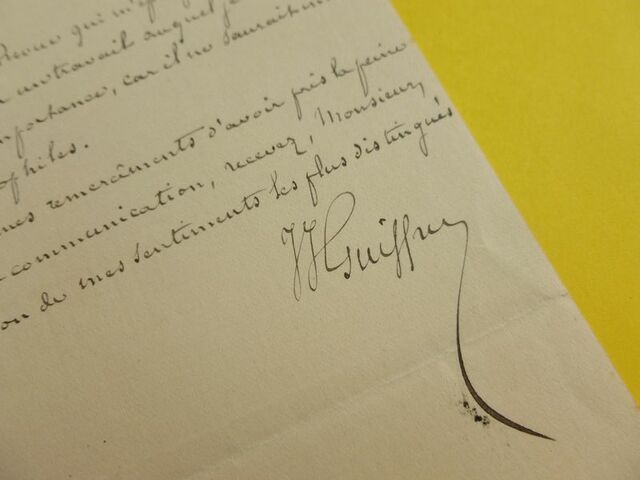 Revue qui m'
un travail auquel je
importance, car il ne saurait
ophiles.
mes remercîments d'avoir pris la peine
communication, recevez, Monsieur,
on de mes sentiments les plus distingués
JJ Guiffrey